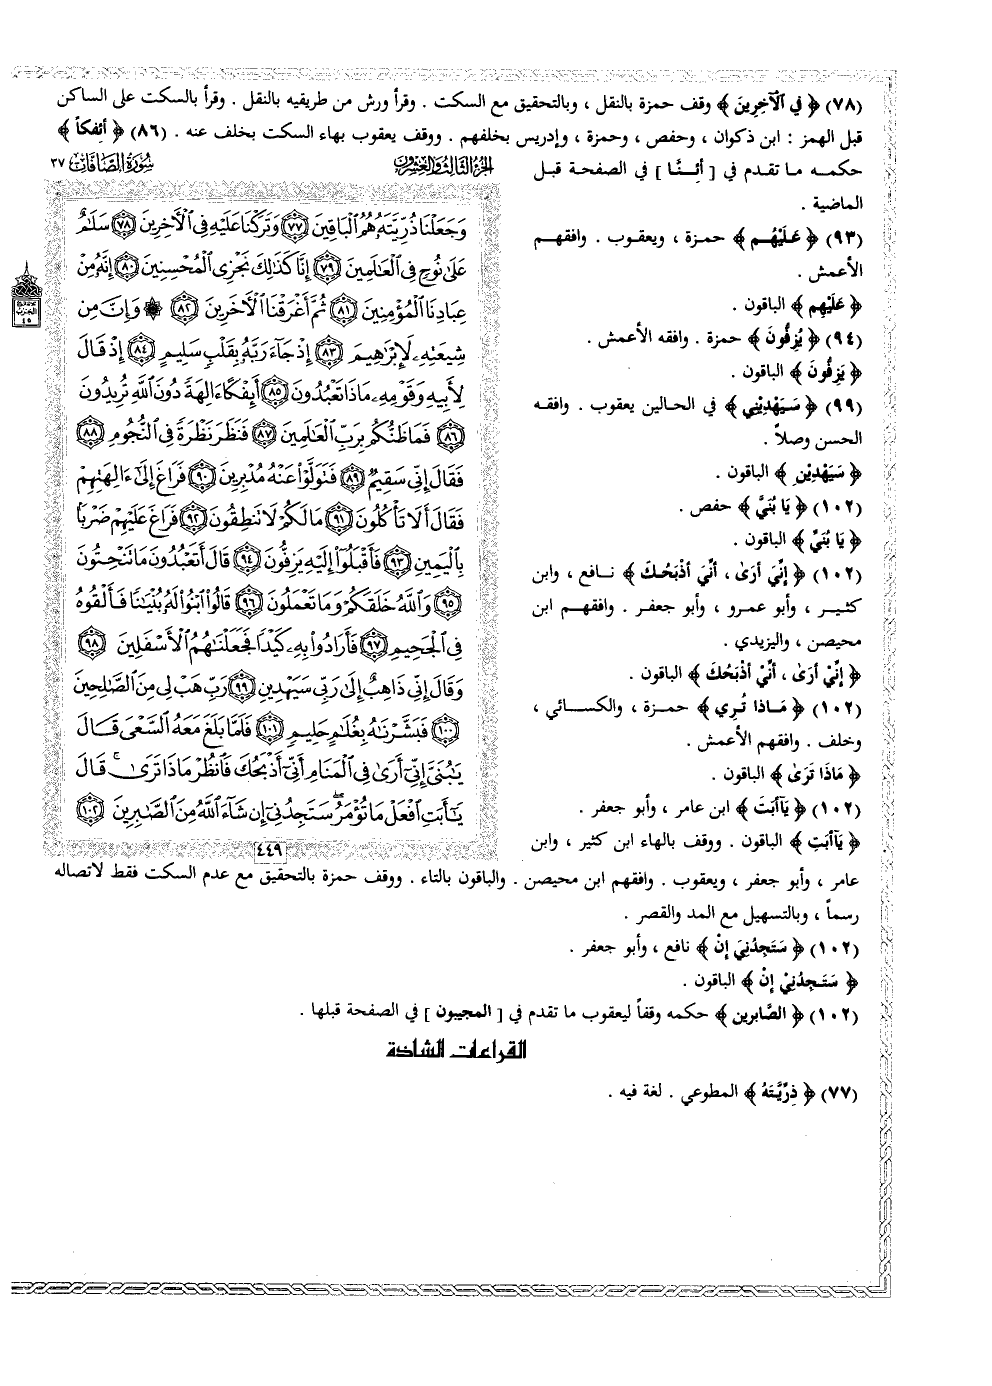 (٧٨) ﴿ فِي الْآخِرِينَ ﴾ وقف حمزة بالنقل ، وبالتحقيق مع السكت . وقرأ ورش من طريقيه بالنقل . وقرأ بالسكت على الساكن
قبل الهمز : ابن ذكوان ، وحفص ، وحمزة ، وإدريس بخلفهم . ووقف يعقوب بهاء السكت بخلف عنه . (٨٦) ﴿ أَئِفْكاً ﴾
حكمه ما تقدم في [ أَئِنَّا ] في الصفحة قبل
الماضية .
(٩٣) ﴿ عَلَيْهُم ﴾ حمزة ، ويعقوب . وافقهم
الأعمش .
﴿ عَلَيْهِم ﴾ الباقون .
(٩٤) ﴿ يُزِفُّونَ ﴾ حمزة . وافقه الأعمش .
﴿ يَزِفُّونَ ﴾ الباقون .
(٩٩) ﴿ سَيَهْدِينِي ﴾ في الحالين يعقوب . وافقه
الحسن وصلاً .
﴿ سَيَهْدِيْنِ ﴾ الباقون .
(١٠٢) ﴿ يَا بُنَيَّ ﴾ حفص .
﴿ يَا بُنَيِّ ﴾ الباقون .
(١٠٢) ﴿ إِنِّيَ أَرَىٰ ، أَنِّيَ أَذْبَحُكَ ﴾ نافع ، وابن
كثير ، وأبو عمرو ، وأبو جعفر . وافقهم ابن
محيصن ، واليزيدي .
﴿ إِنِّيْ أَرَىٰ ، أَنِّيْ أَذْبَحُكَ ﴾ الباقون .
(١٠٢) ﴿ مَاذَا تُرِي ﴾ حمزة ، والكسائي ،
وخلف . وافقهم الأعمش .
﴿ مَاذَا تَرَىٰ ﴾ الباقون .
(١٠٢) ﴿ يَآأَبَتَ ﴾ ابن عامر ، وأبو جعفر .
﴿ يَآأَبَتِ ﴾ الباقون . ووقف بالهاء ابن كثير ، وابن
عامر ، وأبو جعفر ، ويعقوب . وافقهم ابن محيصن . والباقون بالتاء . ووقف حمزة بالتحقيق مع عدم السكت فقط لاتصاله
رسماً ، وبالتسهيل مع المد والقصر .
(١٠٢) ﴿ سَتَجِدُنِيَ إِنْ ﴾ نافع ، وأبو جعفر .
﴿ سَتَجِدُنِيْ إِنْ ﴾ الباقون .
(١٠٢) ﴿ الصَّابرين ﴾ حكمه وقفاً ليعقوب ما تقدم في [ المجيبون ] في الصفحة قبلها .
القراءات الشاذة
(٧٧) ﴿ ذِرِّيَّتَهُ ﴾ المطوعي . لغة فيه .
سُورَةُ الصَّافَّاتِ ٣٧
الجُزءُ الثَّالِثُ وَالعِشْرُونَ
وَجَعَلْنَا ذُرِّيَّتَهُ هُمُ الْبَاقِينَ ٧٧ وَتَرَكْنَا عَلَيْهِ فِي الْآخِرِينَ ٧٨ سَلَامٌ
عَلَىٰ نُوحٍ فِي الْعَالَمِينَ ٧٩ إِنَّا كَذَٰلِكَ نَجْزِي الْمُحْسِنِينَ ٨٠ إِنَّهُ مِنْ
عِبَادِنَا الْمُؤْمِنِينَ ٨١ ثُمَّ أَغْرَقْنَا الْآخَرِينَ ٨٢ ۞ وَإِنَّ مِن
شِيعَتِهِ لَإِبْرَاهِيمَ ٨٣ إِذْ جَاءَ رَبَّهُ بِقَلْبٍ سَلِيمٍ ٨٤ إِذْ قَالَ
لِأَبِيهِ وَقَوْمِهِ مَاذَا تَعْبُدُونَ ٨٥ أَئِفْكًا ءَالِهَةً دُونَ اللَّهِ تُرِيدُونَ
٨٦ فَمَا ظَنُّكُم بِرَبِّ الْعَالَمِينَ ٨٧ فَنَظَرَ نَظْرَةً فِي النُّجُومِ ٨٨
فَقَالَ إِنِّي سَقِيمٌ ٨٩ فَتَوَلَّوْا عَنْهُ مُدْبِرِينَ ٩٠ فَرَاغَ إِلَىٰ ءَالِهَتِهِمْ
فَقَالَ أَلَا تَأْكُلُونَ ٩١ مَا لَكُمْ لَا تَنطِقُونَ ٩٢ فَرَاغَ عَلَيْهِمْ ضَرْبًا
بِالْيَمِينِ ٩٣ فَأَقْبَلُوا إِلَيْهِ يَزِفُّونَ ٩٤ قَالَ أَتَعْبُدُونَ مَا تَنْحِتُونَ
٩٥ وَاللَّهُ خَلَقَكُمْ وَمَا تَعْمَلُونَ ٩٦ قَالُوا ابْنُوا لَهُ بُنْيَانًا فَأَلْقُوهُ
فِي الْجَحِيمِ ٩٧ فَأَرَادُوا بِهِ كَيْدًا فَجَعَلْنَاهُمُ الْأَسْفَلِينَ ٩٨
وَقَالَ إِنِّي ذَاهِبٌ إِلَىٰ رَبِّي سَيَهْدِينِ ٩٩ رَبِّ هَبْ لِي مِنَ الصَّالِحِينَ
١٠٠ فَبَشَّرْنَاهُ بِغُلَامٍ حَلِيمٍ ١٠١ فَلَمَّا بَلَغَ مَعَهُ السَّعْيَ قَالَ
يَابُنَيَّ إِنِّي أَرَىٰ فِي الْمَنَامِ أَنِّي أَذْبَحُكَ فَانظُرْ مَاذَا تَرَىٰ ۚ قَالَ
يَاأَبَتِ افْعَلْ مَا تُؤْمَرُ ۖ سَتَجِدُنِي إِن شَاءَ اللَّهُ مِنَ الصَّابِرِينَ ١٠٢
٤٤٩